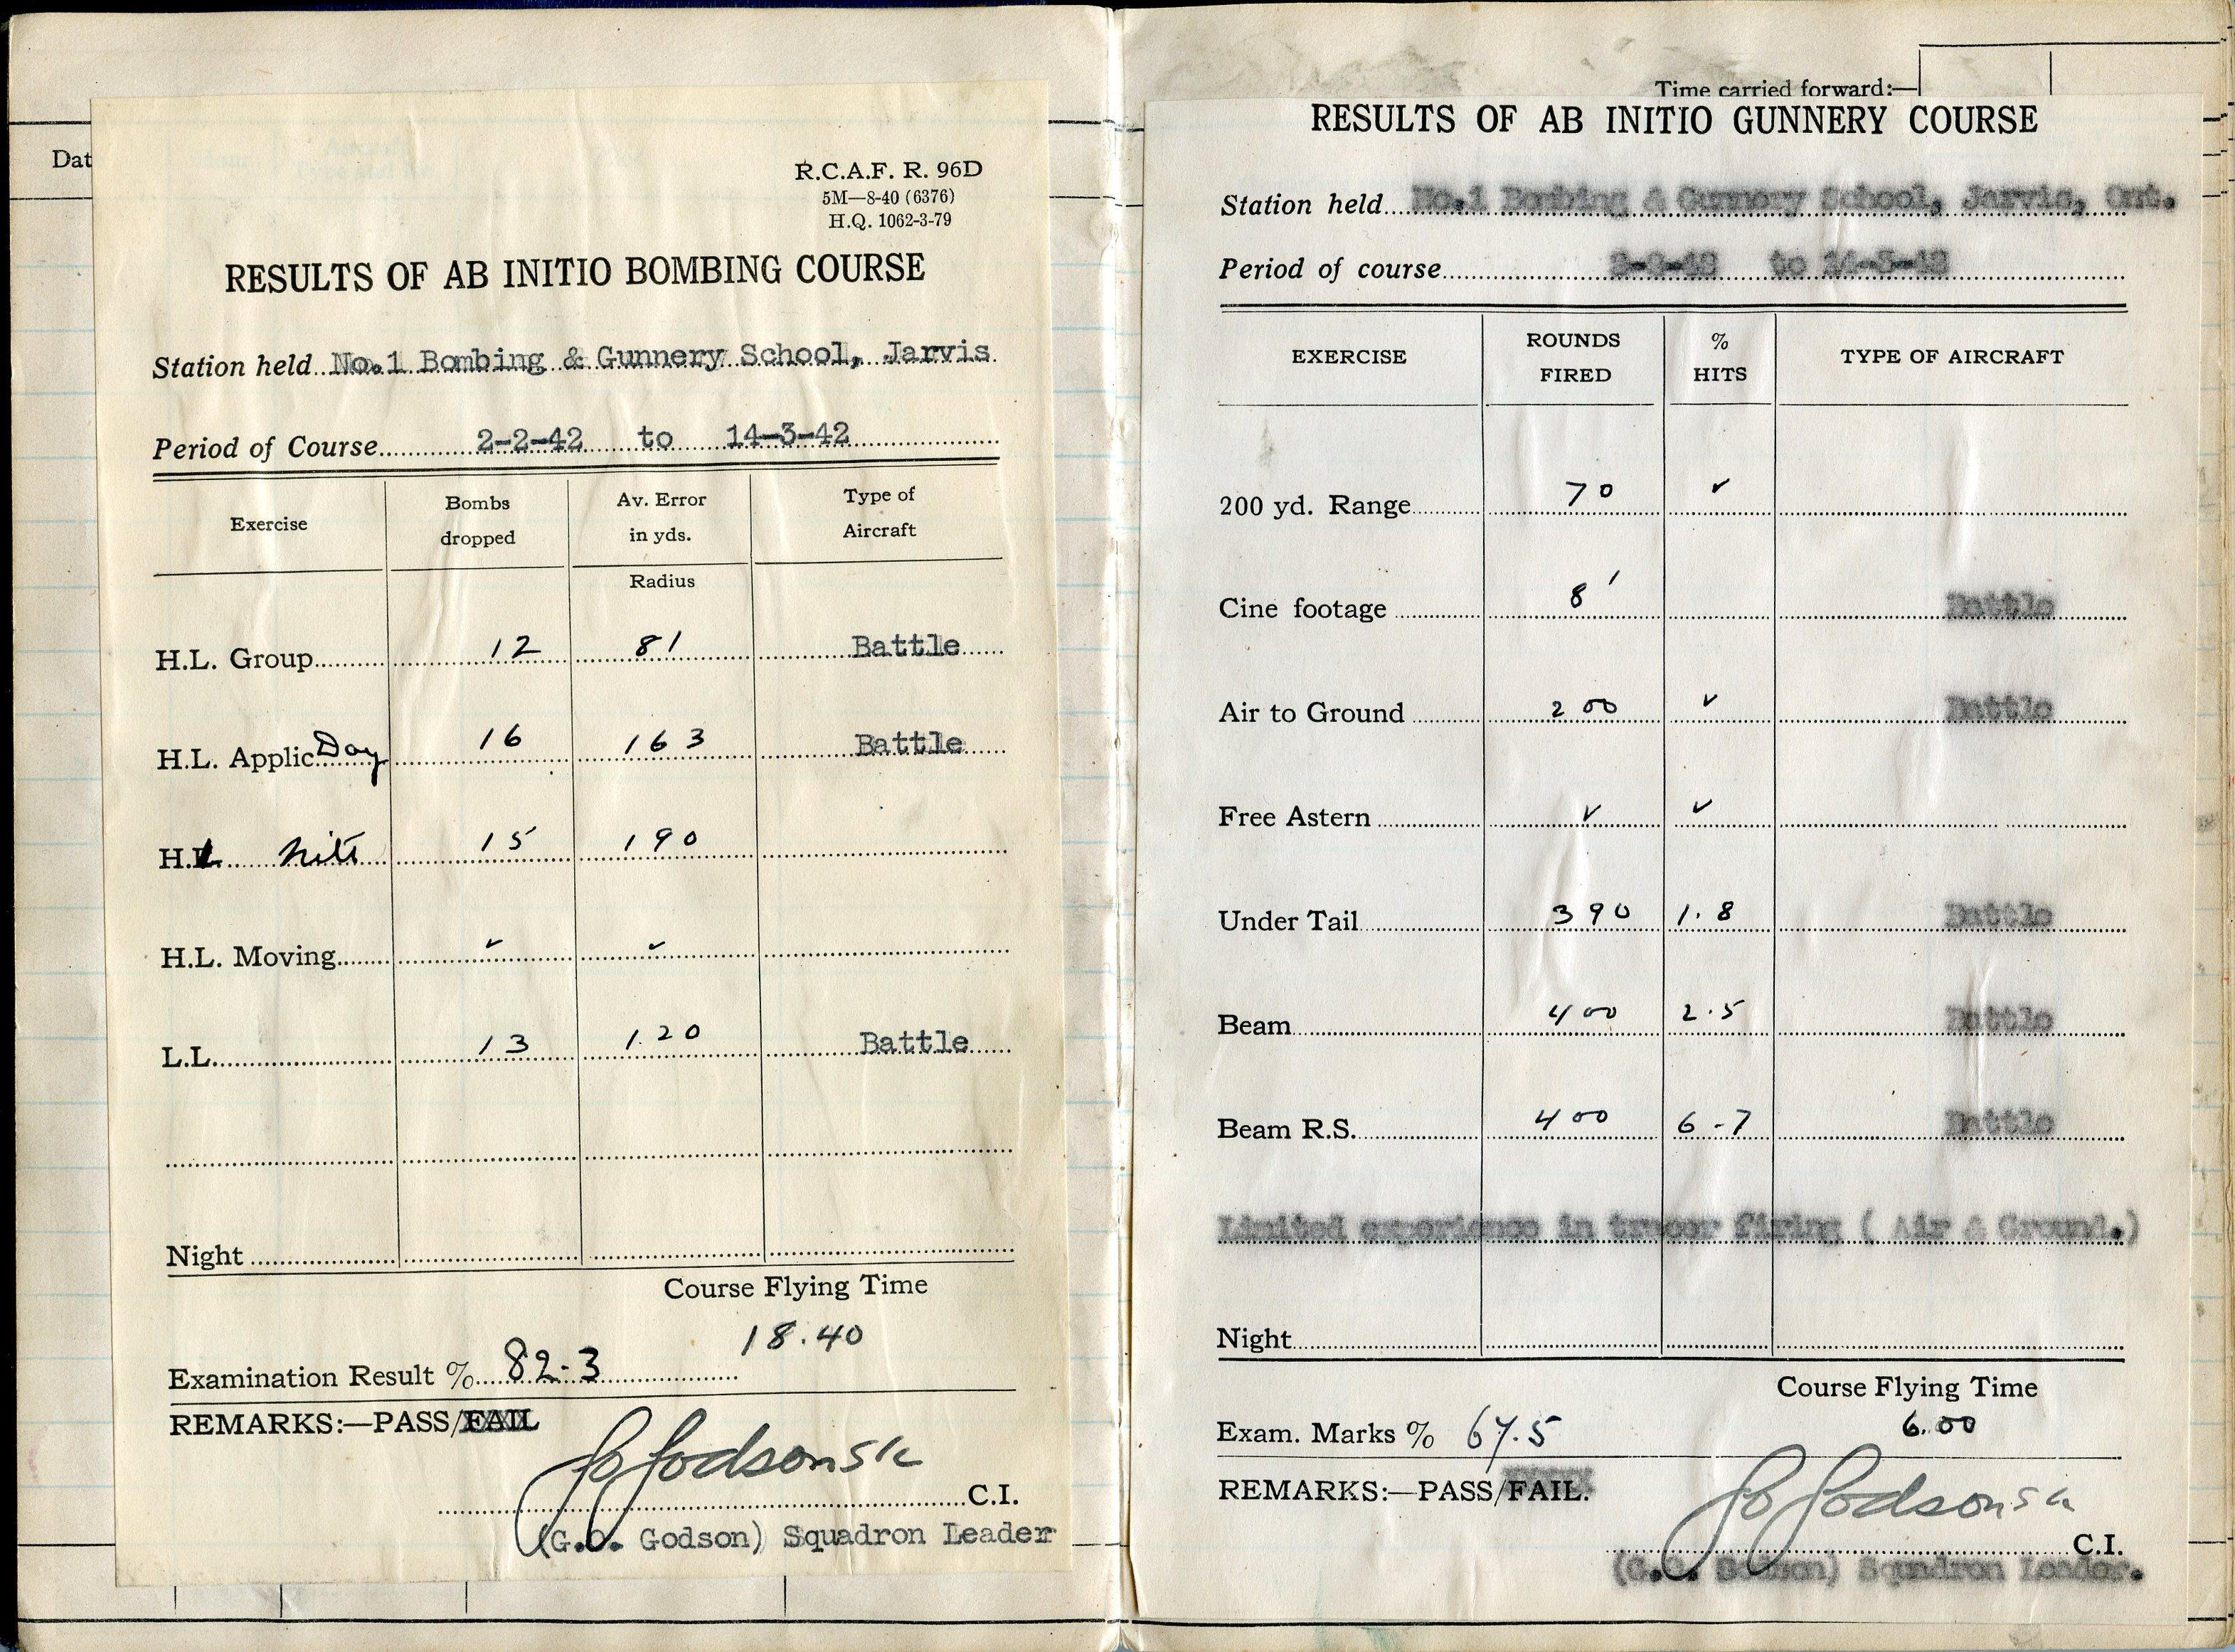 Dat
R.C.A.F. R. 96D
5M—8-40 (6376)
H.Q. 1062-3-79
RESULTS OF AB INITIO BOMBING COURSE
Station held No.1 Bombing & Gunnery School, Jarvis
Period of Course 2-2-42 to 14-3-42
Exercise Bombs dropped Av. Error in yds. Type of Aircraft
Radius
H.L. Group 12 81 Battle
H.L. Applic Day 16 163 Battle
H.L. Nite 15 190
H.L. Moving ✓ ✓
L.L. 13 120 Battle
Night
Course Flying Time
18.40
Examination Result % 82.3
REMARKS:—PASS/FAIL
Godson S/L
C.I.
(G.O. Godson) Squadron Leader
Time carried forward:—
RESULTS OF AB INITIO GUNNERY COURSE
Station held No.1 Bombing & Gunnery School, Jarvis, Ont.
Period of course 2-2-42 to 14-3-42
EXERCISE ROUNDS FIRED % HITS TYPE OF AIRCRAFT
200 yd. Range 70 ✓
Cine footage 8' Battle
Air to Ground 200 ✓ Battle
Free Astern ✓ ✓
Under Tail 390 1.8 Battle
Beam 400 2.5 Battle
Beam R.S. 400 6.7 Battle
Limited experience in tracer firing ( Air & Ground.)
Night
Course Flying Time
Exam. Marks % 67.5 6.00
REMARKS:—PASS/FAIL.
Godson S/L
C.I.
(G.O. Godson) Squadron Leader.